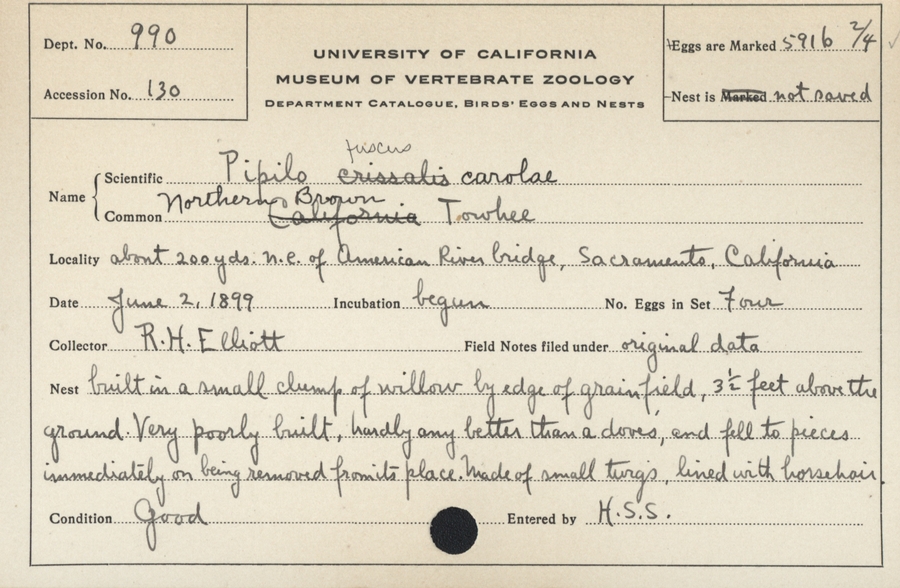 Dept. No. 990
Accession No. 130
UNIVERSITY OF CALIFORNIA
MUSEUM OF VERTEBRATE ZOOLOGY
DEPARTMENT CATALOGUE, BIRDS' EGGS AND NESTS
Eggs are Marked 5916 2/4
Nest is Marked not saved
fuscus
Name
Scientific Pipilo crissalis carolae
Northern Brown
Common California Towhee
Locality about 200 yds. n.e. of American River bridge, Sacramento, California
Date June 2, 1899 Incubation begun No. Eggs in Set Four
Collector R.H. Elliott Field Notes filed under original data
Nest built in a small clump of willow by edge of grainfield, 3½ feet above the
ground. Very poorly built, hardly any better than a doves', and fell to pieces
immediately on being removed from its place. Made of small twigs, lined with horsehair.
Condition Good Entered by H.S.S.